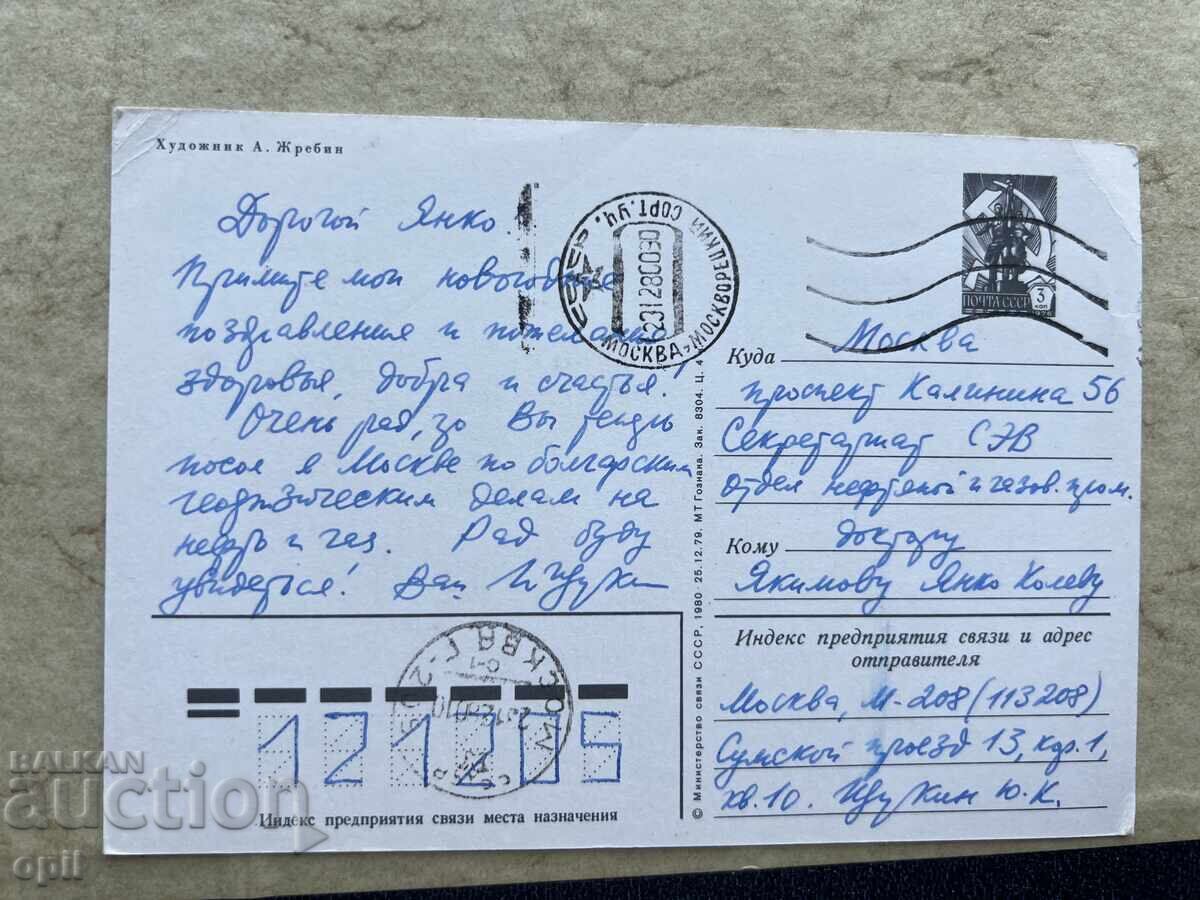 Художник А. Жребин
Дорогой Янко.
Примите мои новогодние
поздравления и пожелания
здоровья, добра и счастья!
Очень рад, Вы
в Москве по болгарским
делам на
нефть и газ. Рад буду
увидеться! Ваш
МОСКВА-МОСКВОРЕЦКИЙ СОРТ.УЧ.
2312800930
ПОЧТА СССР 3 коп
Куда Москва
проспект Калинина 56
Секретариат СЭВ
отдел нефтяной и газов. пром.
Кому доктору
Якимову Янко Колеву
Индекс предприятия связи и адрес
отправителя
Москва, М-208 (113208)
Сумской проезд 13, кор. 1,
кв. 10. Щукин Ю. К.
© Министерство связи СССР, 1980 · 25.12.79. МТ Гознака. Зак. 8304. Ц. 4
МОСКВА Г-2
121205
Индекс предприятия связи места назначения
BALKAN
auction
opil